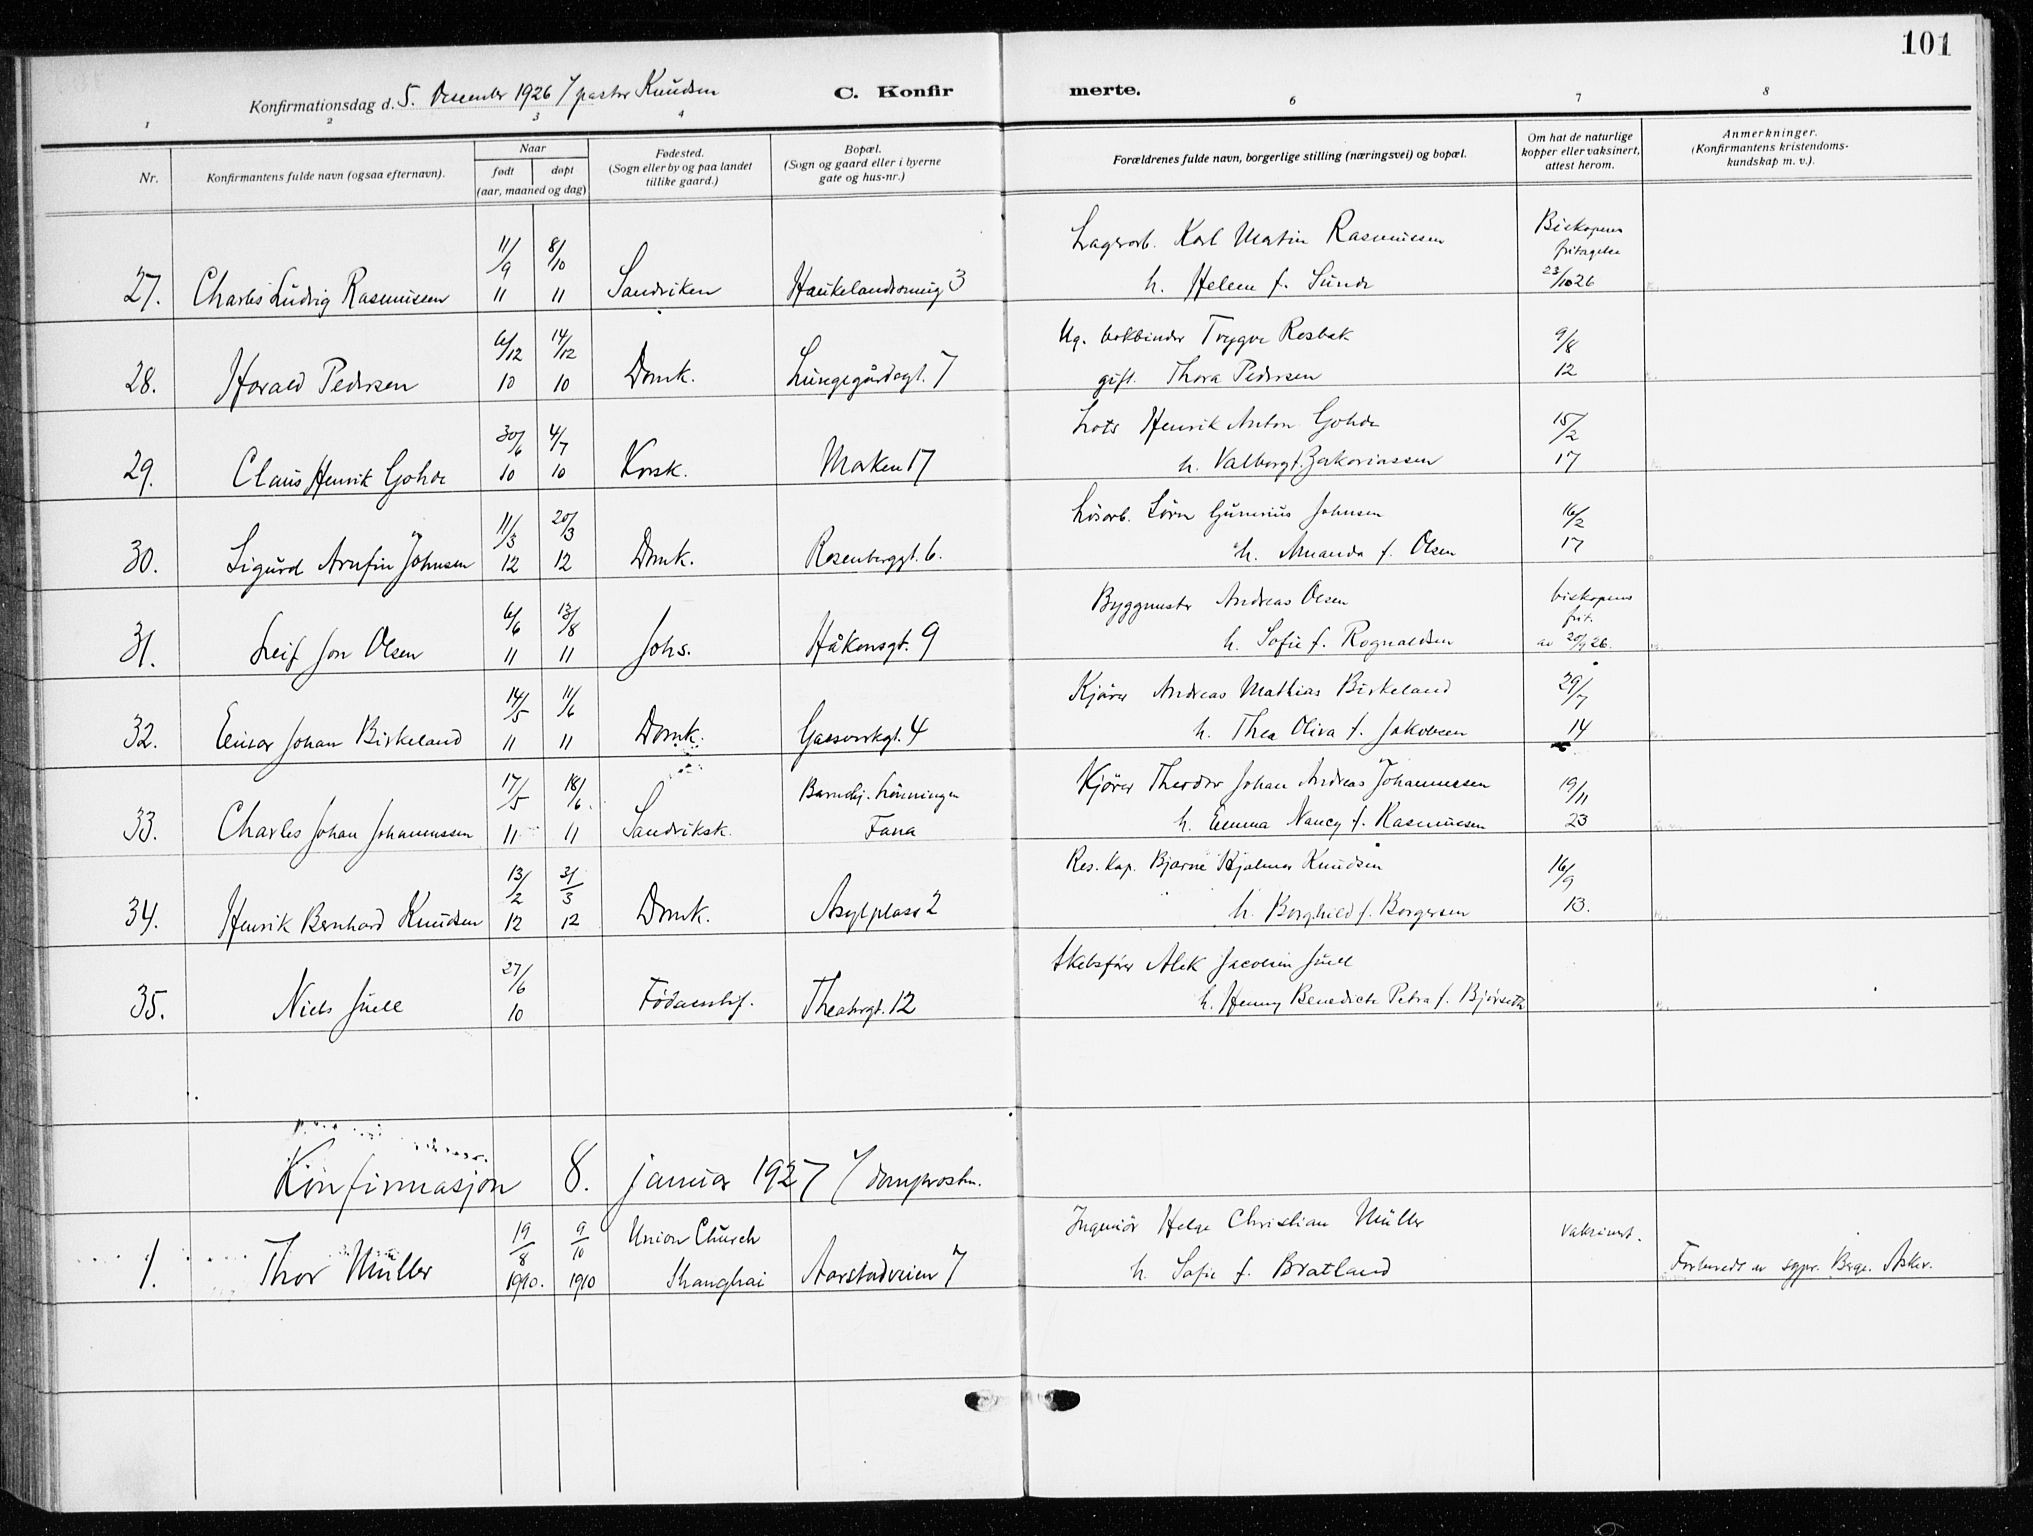 101
Konfirmationsdag d. 5. Desember 1926 / pastor Knudsen
C. Konfirmerte.
1 2 3 4 6 7 8
Nr.
Konfirmantens fulde navn (ogsaa efternavn).
Naar
født døpt
(aar, maaned og dag)
Fødested.
(Sogn eller by og paa landet
tillike gaard.)
Bopæl.
(Sogn og gaard eller i byerne
gate og hus-nr.)
Forældrenes fulde navn, borgerlige stilling (næringsvei) og bopæl.
Om hat de naturlige
kopper eller vaksinert,
attest herom.
Anmerkninger.
(Konfirmantens kristendoms-
kundskap m. v.).
27. Charles Ludvig Rasmussen 11/9 11 8/10 11 Sandviken Haukelandsveg 3
Lagerarb. Karl Martin Rasmussen
h. Helene f. Sunde
Biskopens
fritagelse
23/10 26
28. Harald Pedersen 6/12 10 14/12 10 Domk. Lungegårdsgt. 7
Ug. bokbinder Trygve Resbak
gift. Thora Pedersen
9/8
12
29. Claus Henrik Gohde 30/6 10 4/7 10 Korsk. Marken 17
Lots Henrik Anton Gohde
h. Valborg f. Zakariassen
15/2
17
30. Sigurd Arnfin Johnsen 11/3 12 20/3 12 Domk. Rosenberggt. 6.
Løsarb. Sørn Gunerius Johnsen
h. Amanda f. Olsen
16/2
17
31. Leif Jon Olsen 6/6 11 13/8 11 Johs. Håkonsgt. 9
Byggmester Andreas Olsen
h. Sofie f. Rognaldsen
biskopens
frit.
av 20/9 26.
32. Einar Johan Birkeland 14/5 11 11/6 11 Domk. Gassverkgt. 4
Kjører Andreas Mathias Birkeland
h. Thea Oliva f. Jakobsen
29/7
14
33. Charles Johan Johannessen 17/5 11 18/6 11 Sandviksk. Barnehj. Lønningen
Fana
Kjører Theodor Johan Andreas Johannessen
h. Emma Nancy f. Rasmussen
19/11
23
34. Henrik Bernhard Knudsen 13/2 12 31/3 12 Domk. Asylplass 2
Res. kap. Bjarne Hjalmar Knudsen
h. Borghild f. Borgersen
16/9
13.
35. Niels Juell 27/6 10 Fødselsstif. Theatergt. 12
Skibsfører Alek Jacobsen Juell
h. Henny Benedicte Petra f. Bjørseth
Konfirmasjon 8. januar 1927 / domprosten.
1. Thor Müller 19/8 1910. 9/10 1910 Union Church
Shanghai Aarstadveien 7
Ingeniør Helge Christian Müller
h. Sofie f. Bratland
Vaksinert.
Forberedt av sogpr. Berge. Asker.